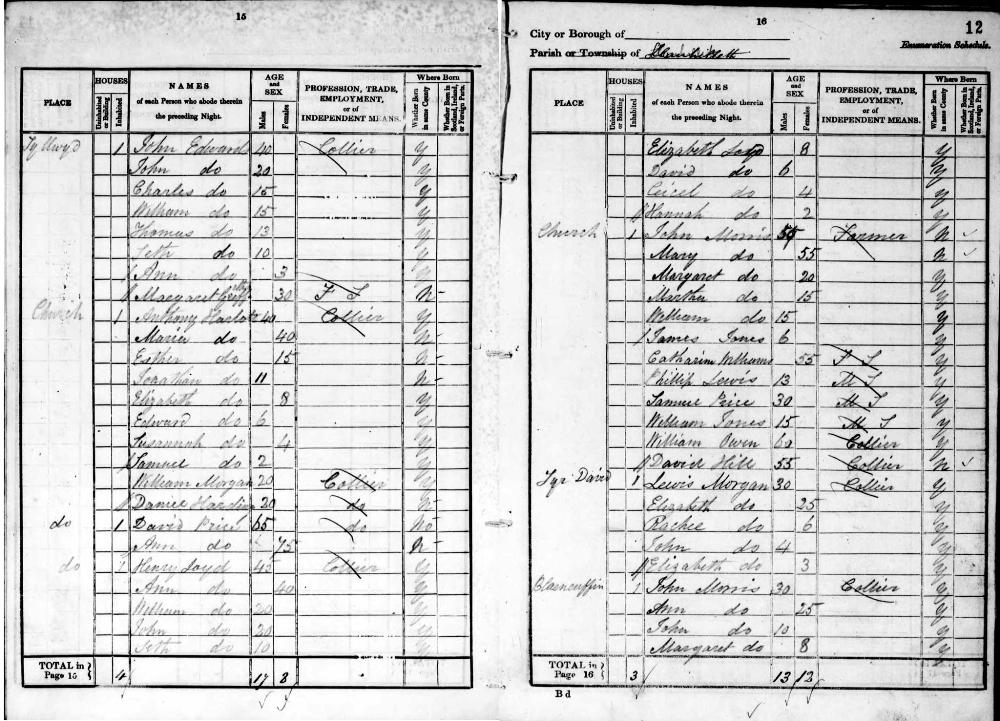 15
PLACE
HOUSES
Uninhabited or Building
Inhabited
NAMES
of each Person who abode therein
the preceding Night.
AGE
and
SEX
Males
Females
PROFESSION, TRADE,
EMPLOYMENT,
or of
INDEPENDENT MEANS.
Where Born
Whether Born in same County
Whether Born in Scotland, Ireland, or Foreign Parts.
Ty llwyd 1 John Edwards 40 Collier Y
John do 20 Y
Charles do 15 Y
William do 15 Y
Thomas do 13 Y
Seth do 10 Y
Ann do 3 Y
Margaret 30 F S N
Church 1 Anthony 40 Collier Y
Maria do 40 N
Esther do 15 N
Jonathan do 11 N
Elizabeth do 8 Y
Edward do 6 Y
Susannah do 4 Y
Samuel do 2 Y
William Morgan 20 Collier Y
Daniel 20 do N
do 1 David Price 65 do No
Ann do 75 N
do 1 Henry Loyd 45 Collier Y
Ann do 40 Y
William do 20 Y
John do 20 Y
Seth do 10 Y
TOTAL in Page 15 } 4 17 8
16
12
City or Borough of
Enumeration Schedule.
Parish or Township of
PLACE
HOUSES
Uninhabited or Building
Inhabited
NAMES
of each Person who abode therein
the preceding Night.
AGE
and
SEX
Males
Females
PROFESSION, TRADE,
EMPLOYMENT,
or of
INDEPENDENT MEANS.
Where Born
Whether Born in same County
Whether Born in Scotland, Ireland, or Foreign Parts.
Elizabeth Loyd 8 Y
David do 6 Y
Cicel do 4 Y
Hannah do 2 Y
Church 1 John Morris 55 Farmer N
Mary do 55 N
Margaret do 20 Y
Martha do 15 Y
William do 15 Y
James Jones 6 Y
Catharine Williams 55 F S Y
Phillip Lewis 13 M S Y
Samuel Price 30 M S Y
William Jones 15 M S Y
William Owen 60 Collier Y
David Hill 55 Collier N
Tyr David 1 Lewis Morgan 30 Collier Y
Elizabeth do 25 Y
Rachel do 6 Y
John do 4 Y
Elizabeth do 3 Y
Blaencuffin 1 John Morris 30 Collier Y
Ann do 25 Y
John do 10 Y
Margaret do 8 Y
TOTAL in Page 16 } 3 13 12
B d